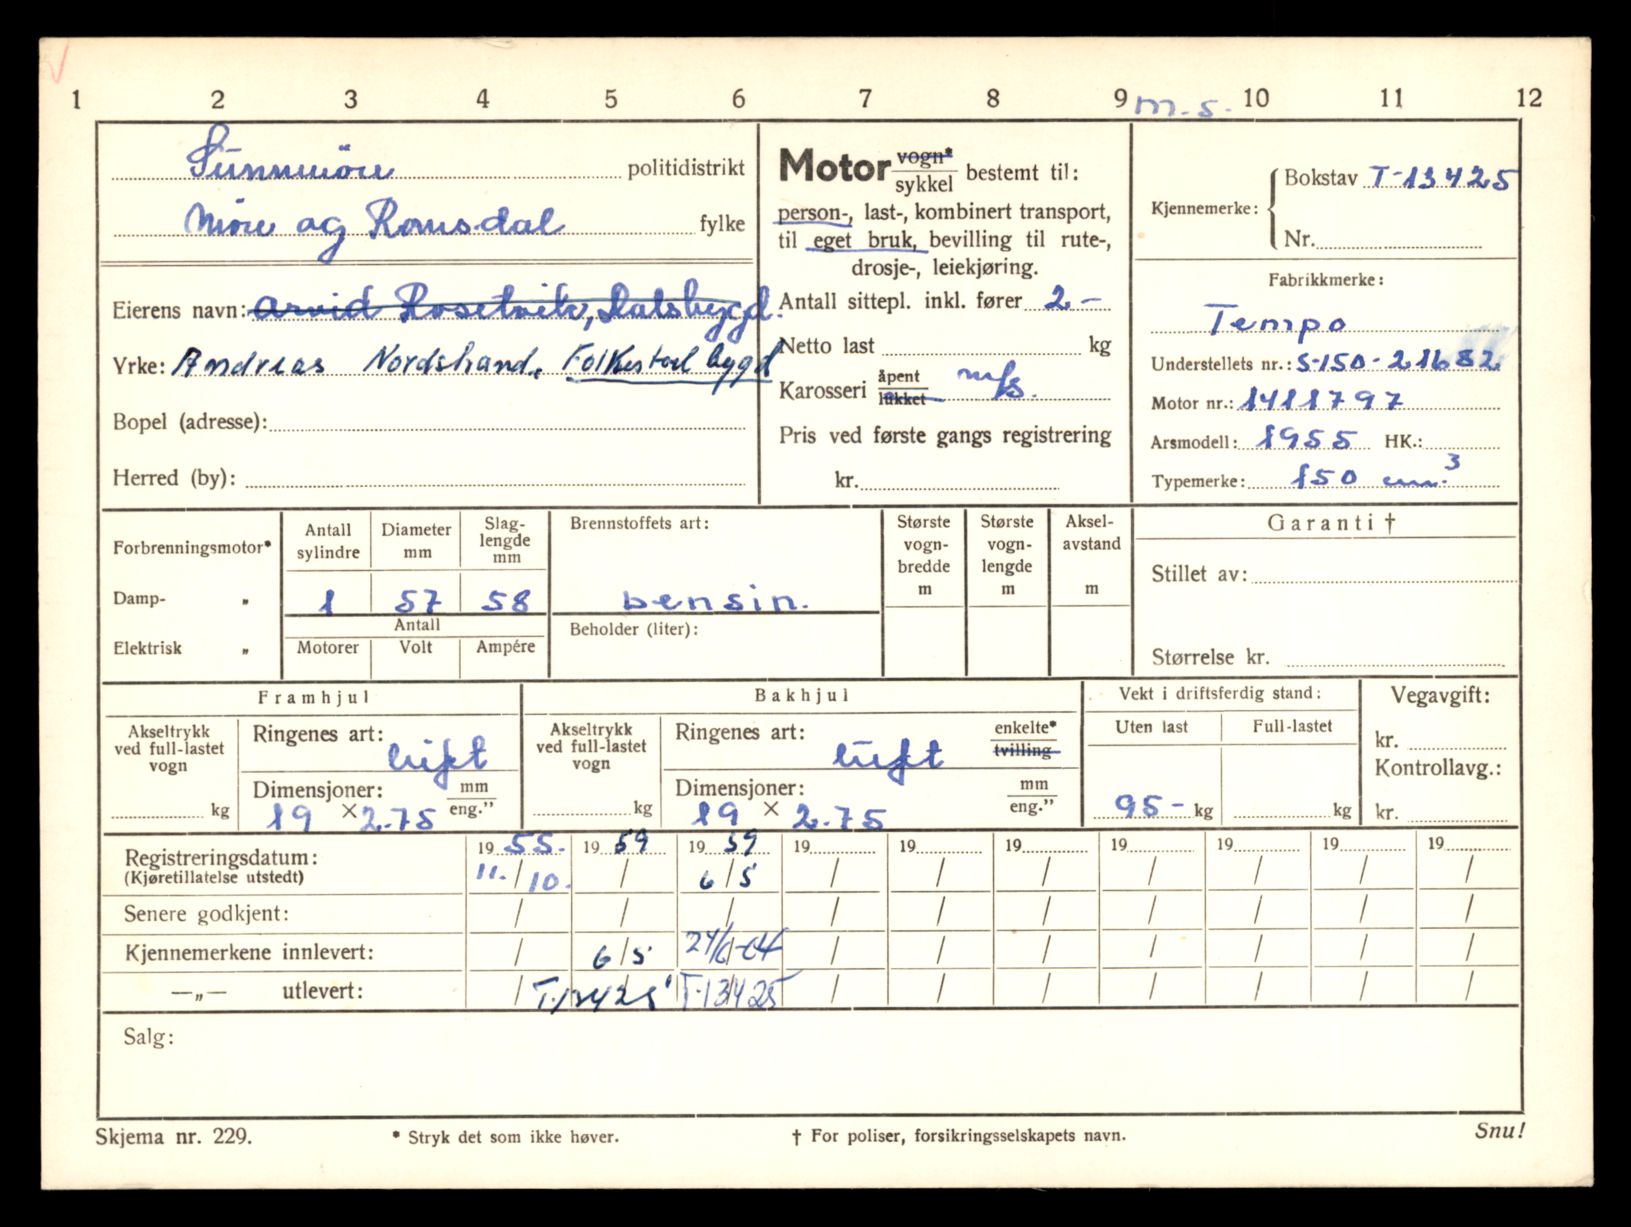 1 2 3 4 5 6 7 8 9 m.s. 10 11 12
Sunnmöre politidistrikt
Möre og Romsdal fylke
Eierens navn: Arvid Rosetvik, Dalsbygd.
Yrke: Andreas Nordstrand. Folkestad bygd
Bopel (adresse):
Herred (by):
Motor vogn* / sykkel bestemt til:
person-, last-, kombinert transport,
til eget bruk, bevilling til rute-,
drosje-, leiekjøring.
Antall sittepl. inkl. fører 2 -
Netto last kg
Karosseri åpent / lukket m/s.
Pris ved første gangs registrering
kr.
Kjennemerke: Bokstav T-13425
Nr.
Fabrikkmerke:
Tempo
Understellets nr.: S-150-21682
Motor nr.: 1411797
Arsmodell: 1955 HK.:
Typemerke: 150 cm.³
Forbrenningsmotor*
Damp- „
Elektrisk „
Antall sylindre 1
Diameter mm 57
Slag-lengde mm 58
Antall
Motorer Volt Ampére
Brennstoffets art:
bensin.
Beholder (liter):
Største vogn-bredde m
Største vogn-lengde m
Aksel-avstand m
Garanti †
Stillet av:
Størrelse kr.
Framhjul
Akseltrykk ved full-lastet vogn kg
Ringenes art: luft
Dimensjoner: 19 × 2.75 mm / eng.”
Bakhjul
Akseltrykk ved full-lastet vogn kg
Ringenes art: luft enkelte* / tvilling
Dimensjoner: 19 × 2.75 mm / eng.”
Vekt i driftsferdig stand:
Uten last Full-lastet
95 - kg kg
Vegavgift:
kr.
Kontrollavg.:
kr.
Registreringsdatum: 19 55. 19 59 19 59 19 19 19 19 19 19 19
(Kjøretillatelse utstedt) 11./10. / 6/5 / / / / / / /
Senere godkjent: / / / / / / / / / /
Kjennemerkene innlevert: / 6/5 24/6-64 / / / / / / /
—„— utlevert: / T-13425 T-13425 / / / / / / /
Salg:
Skjema nr. 229.
* Stryk det som ikke høver.
† For poliser, forsikringsselskapets navn.
Snu!